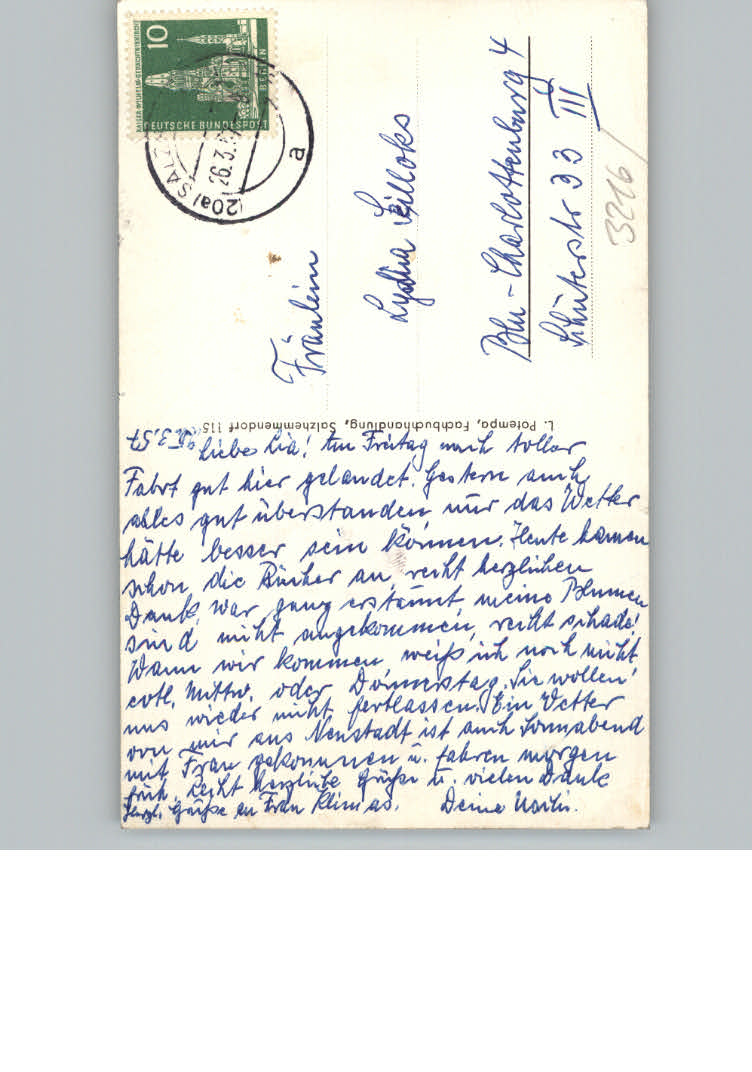 10
KAISER-WILHELM-GEDÄCHTNISKIRCHE
BERLIN
DEUTSCHE BUNDESPOST
(20a) SALZ
26.3.5
a
Fräulein
Lydia
Bln-Charlottenburg 4
Schlüterstr 33 III
3216
L. Potempa, Fachbuchhandlung, Salzhemmendorf 115
3.57
Liebe Lia! Am Freitag nach toller
Fahrt gut hier gelandet. Gestern auch
alles gut überstanden nur das Wetter
hätte besser sein können. Heute kamen
schon die Bücher an, recht herzlichen
Dank, war ganz erstaunt, meine Blumen
sind nicht angekommen, recht schade!
Wann wir kommen, weiß ich noch nicht
evtl. Mittw. oder Donnerstag. Sie wollen
uns wieder nicht fortlassen. Ein Vetter
von mir aus Neustadt ist auch Sonnabend
mit Frau gekommen u. fahren morgen
früh. Recht herzliche Grüße u. vielen Dank
Herzl. Grüße an Frau Klimas. Deine